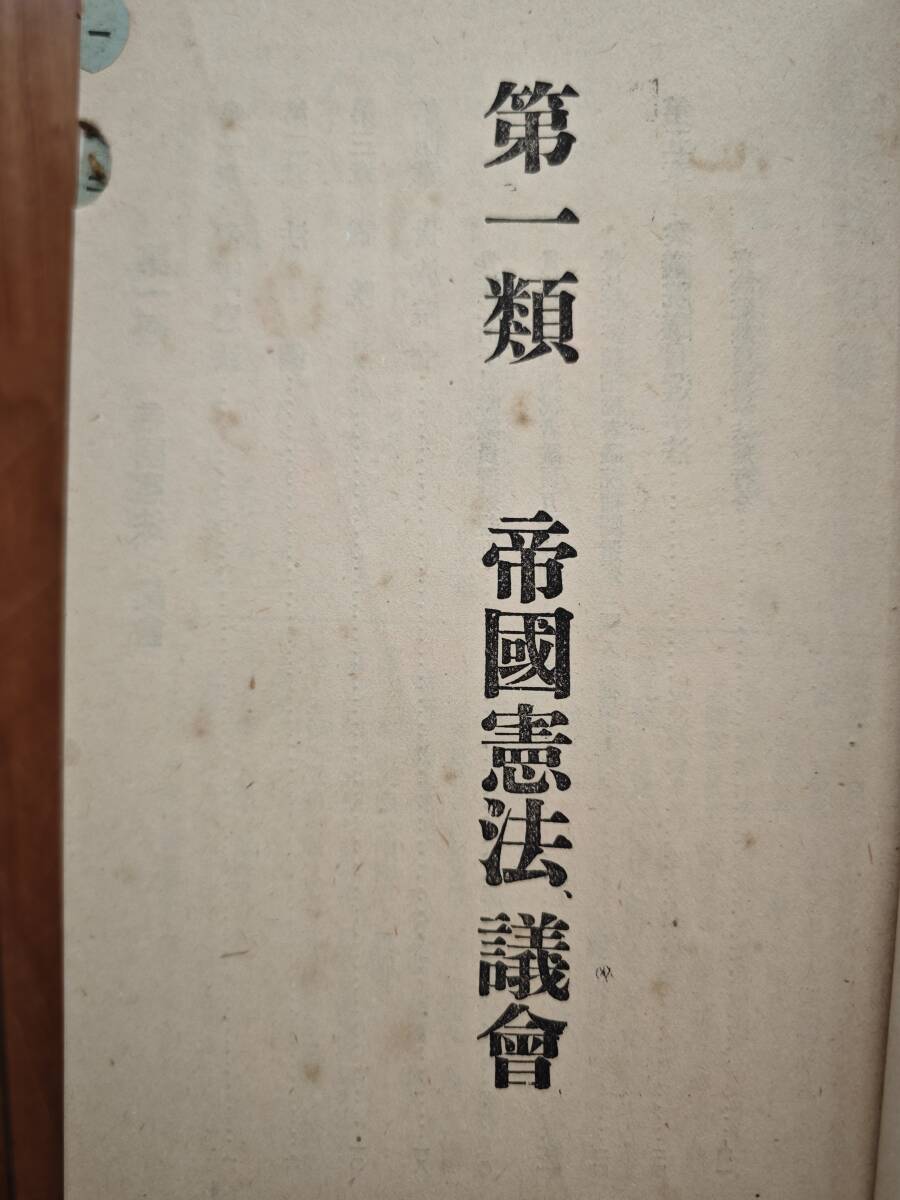 第一類　帝國憲法、議會
一
二